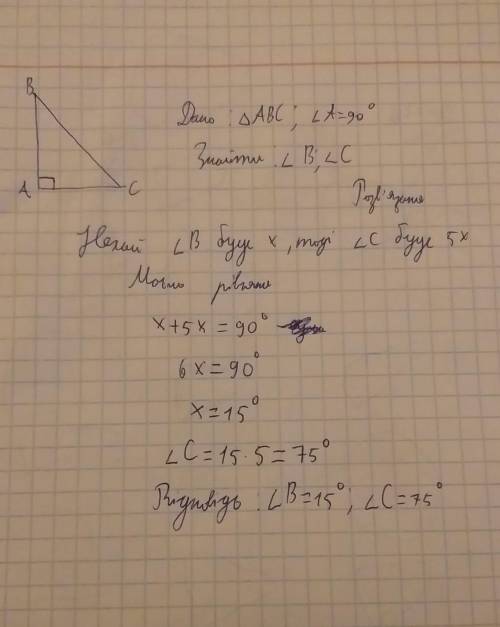 B
A
C
Дано : △ABC; ∠A=90°
Знайти : ∠B; ∠C
Розв'язання
Нехай ∠B буде x, тоді ∠C буде 5x
Маємо рівняння
x+5x=90°
6x=90°
x=15°
∠C=15·5=75°
Відповідь : ∠B=15°; ∠C=75°